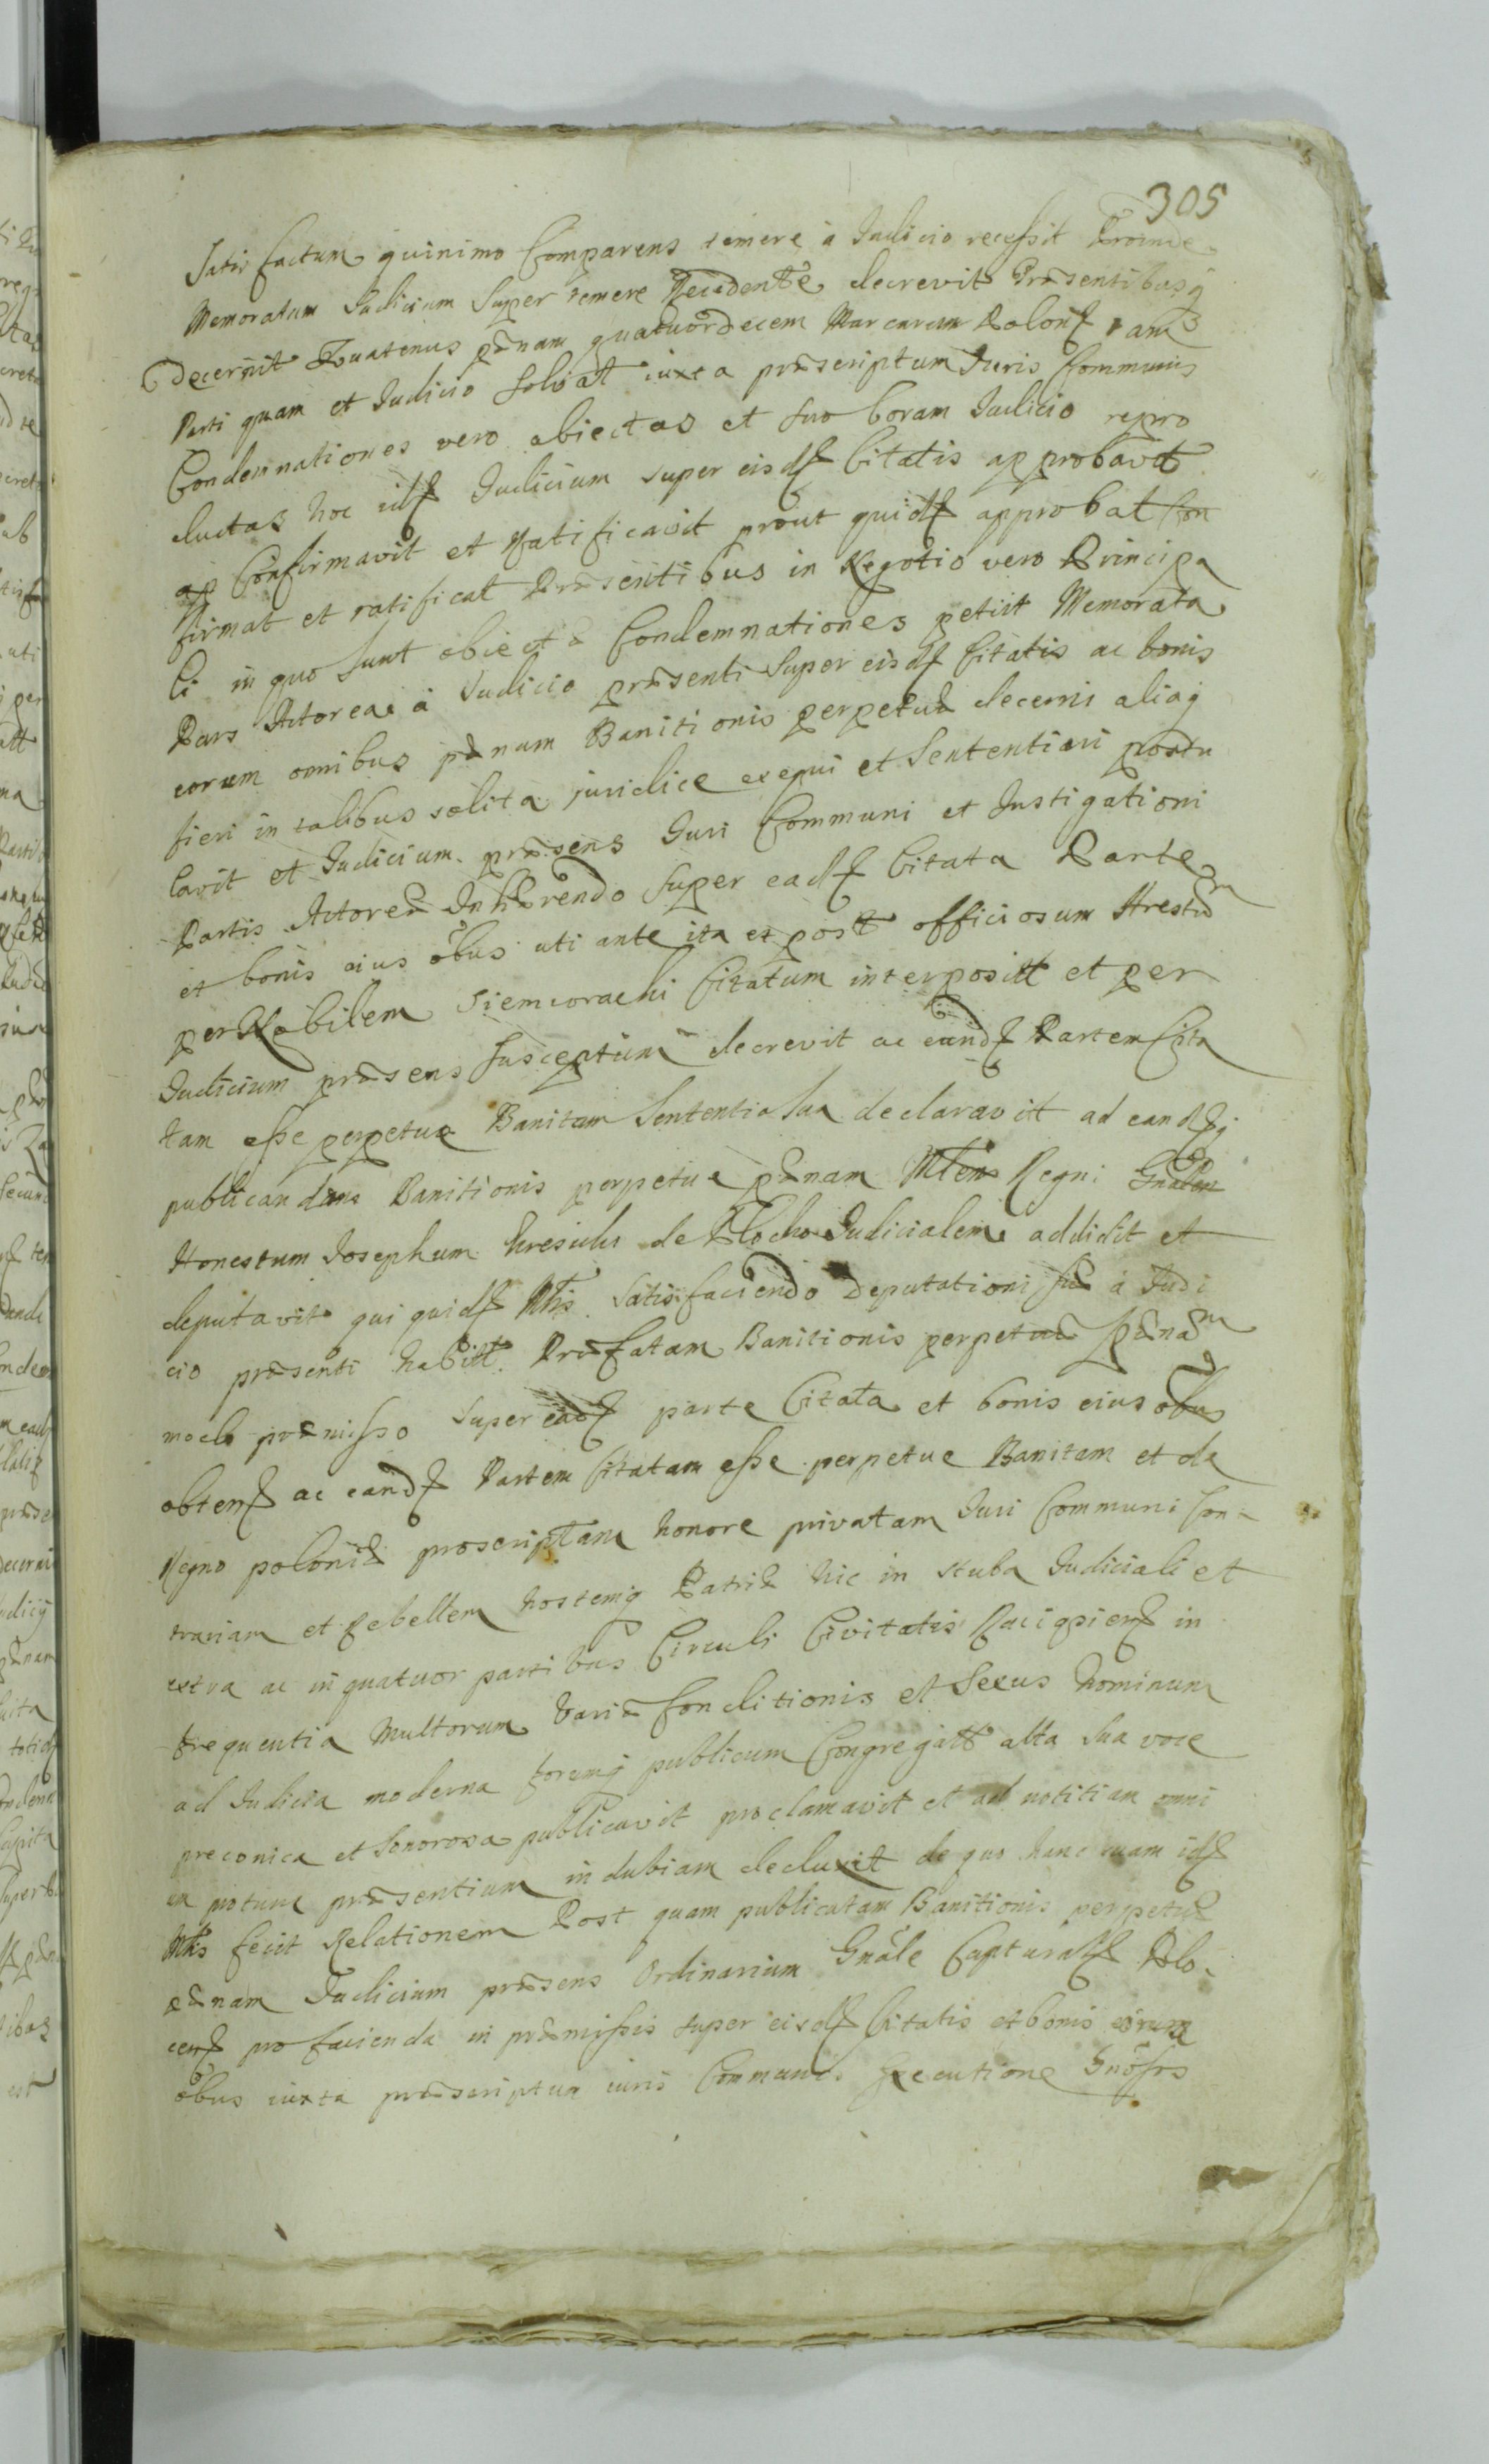 305
Satis factum quinimo Comparens temere à Iudicio recessit Proinde
Memoratum Iudicium Super temere Recedente decrevit Præsentibusq
Decernit Quatenus pænam quatuordecem Marcarum Polonʒ tam
Parti quam et Iudicio Solvat iuxta præscriptum Iuris Communis
Condemnationes vero obiectas et suo Coram Iudicio repro
ductas hoc idʒ Iudicium super eisdʒ Citatis approbavit
Confirmavit et Ratificavit prout quidʒ approbat Con
firmat et ratificat Præsentibus in Negotio vero Principa
li in quo sunt obiectæ Condemnationes petiit Memorata
Pars Actorea à Iudicio præsenti Super eisdʒ Citatis ac bonis
eorum omnibus pænam Banitionis perpetuæ decerni aliaq
fieri in talibus solita juridice exequi et Sententiari postu
lavit et Iudicium præsens Iuri Communi et Instigationi
Partis Actoreæ Inhærendo super eadʒ Citata Parte
et bonis eius oĩbus uti ante ita et post officiosum Arestum
per Nobilem Citatum interpositt et per
Iudicium præsens Susceptum decrevit ac eandʒ Partem Cita
tam esse perpetuo Banitam Sententia sua declaravit ad eandʒq
publicandam Banitionis perpetuæ pænam Mtem Regni Gnalem
Honestum Iosephum de Plocko Iudicialem addidit et
deputavit qui quidʒ Mtis Satisfaciendo Deputationi suæ à Iudi
cio præsenti habitt Præfatam Banitionis perpetuæ pænam
modo præmisso super eadʒ parte Citata et bonis eius oĩbus
obtenʒ ac eandʒ Partem Citatam esse perpetue Banitam et de
Regno poloniæ proscriptam honore privatam Iuri Communi Con-
trariam et Rebellem hostemq Patriæ hic in stuba Iudiciali et
extra ac in quatuor partibus Circuli Civitatis Raciązienʒ in
frequentia Multorum Variæ Conditionis et Sexus hominum
ad Iudicia moderna forumq publicum Congregatt alta Sua voce
preconica et Sonorosa publicavit proclamavit et ad notitiam omni
præsentium indubiam deduxit de quo hanc suam idʒ
Mtis fecit Relationem Post quam publicatam Banitionis perpetuæ
pænam Iudicium præsens Ordinarium Gnãle Capturalʒ Plo-
cenʒ pro facienda in præmissis super eisdʒ Citatis et bonis eorum
oĩbus iuxta præscriptum iuris Communis Executione Gnõsos